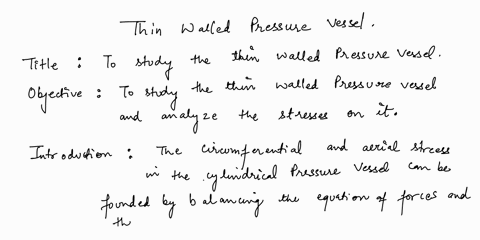 Thin walled Pressure vessel.
Title : To study the thin walled Pressure vessel.
Objective : To study the thin walled Pressure vessel
and analyze the stresses on it.
Introduction : The circumferential and aerial stress
in the cylindrical Pressure Vessel can be
founded by balancing the equation of forces and
th